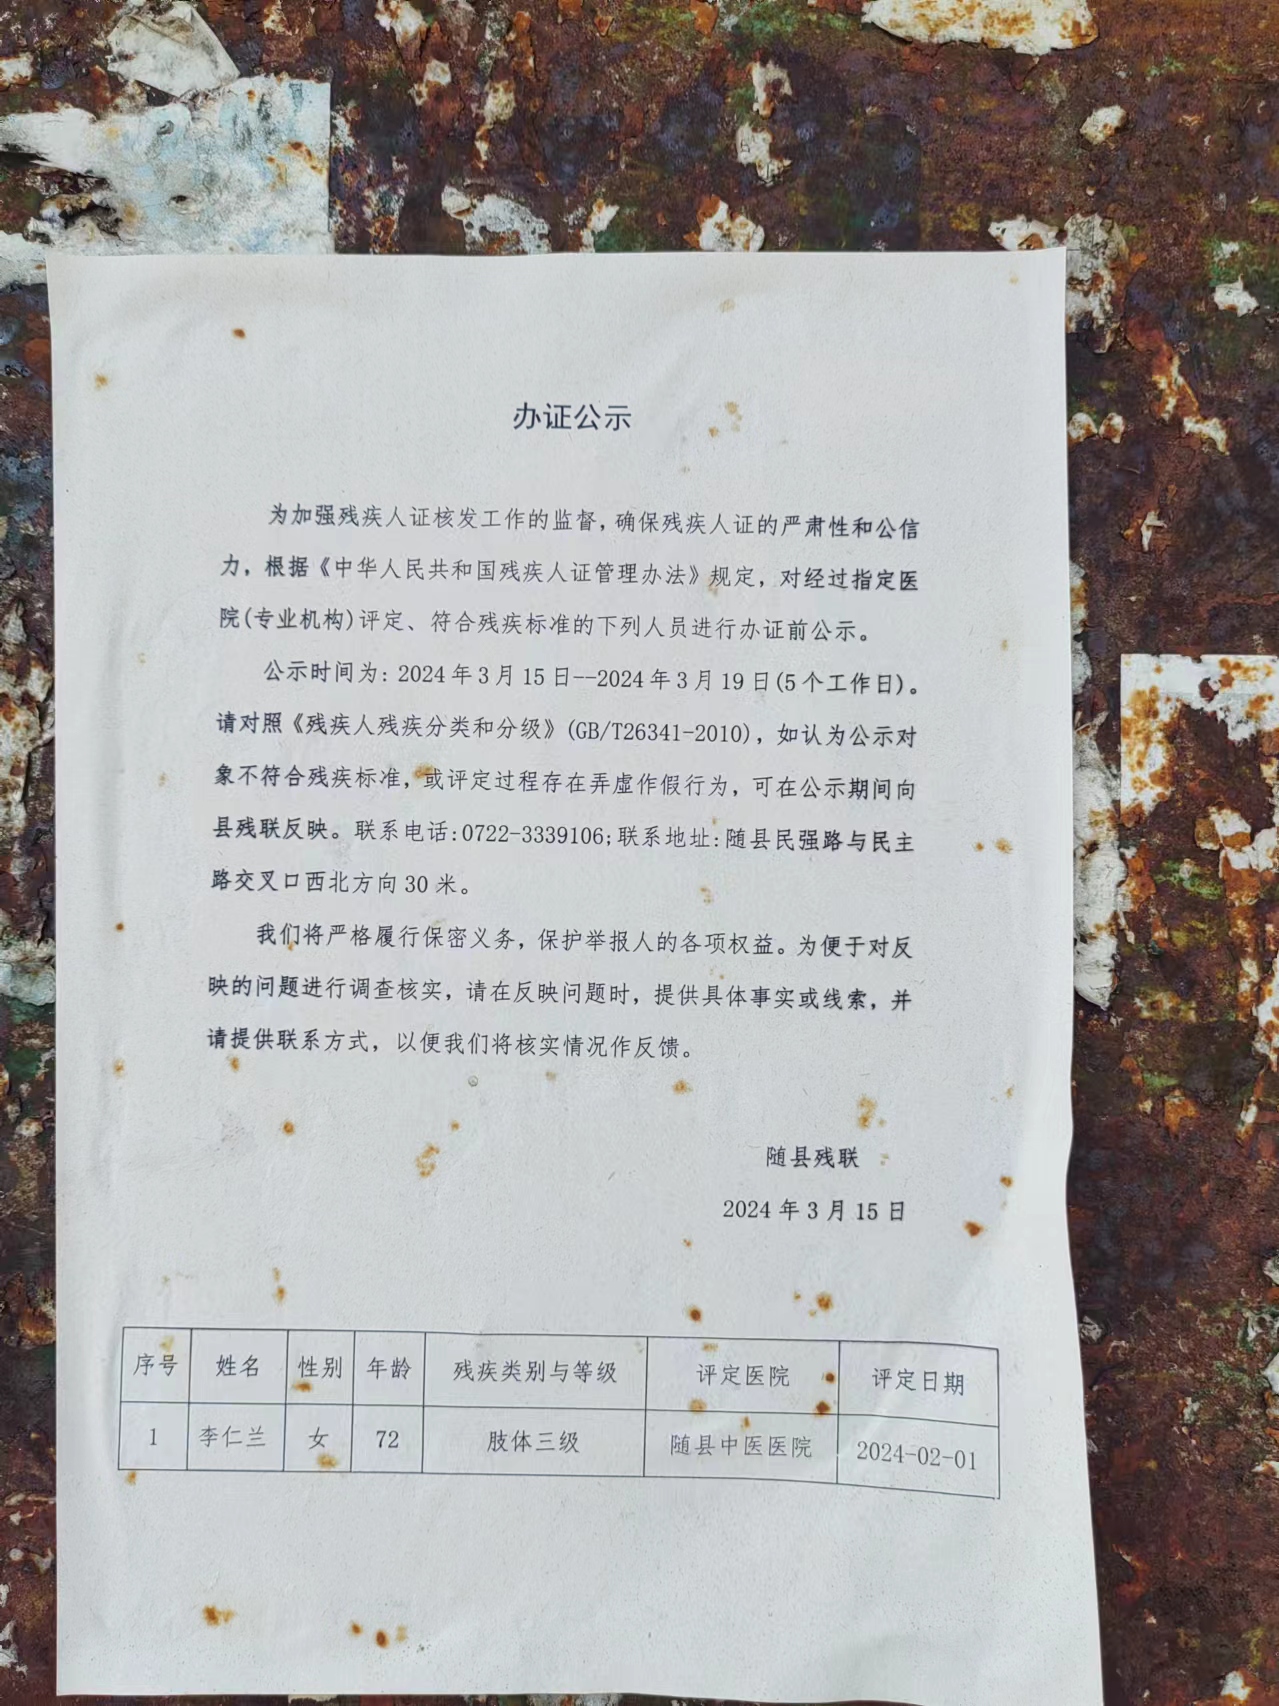 办证公示
为加强残疾人证核发工作的监督，确保残疾人证的严肃性和公信
力，根据《中华人民共和国残疾人证管理办法》规定，对经过指定医
院(专业机构)评定、符合残疾标准的下列人员进行办证前公示。
公示时间为：2024年3月15日--2024年3月19日(5个工作日)。
请对照《残疾人残疾分类和分级》(GB/T26341-2010)，如认为公示对
象不符合残疾标准，或评定过程存在弄虚作假行为，可在公示期间向
县残联反映。联系电话:0722-3339106;联系地址:随县民强路与民主
路交叉口西北方向30米。
我们将严格履行保密义务，保护举报人的各项权益。为便于对反
映的问题进行调查核实，请在反映问题时，提供具体事实或线索，并
请提供联系方式，以便我们将核实情况作反馈。
随县残联
2024年3月15日
序号 姓名 性别 年龄 残疾类别与等级 评定医院 评定日期
1 李仁兰 女 72 肢体三级 随县中医医院 2024-02-01